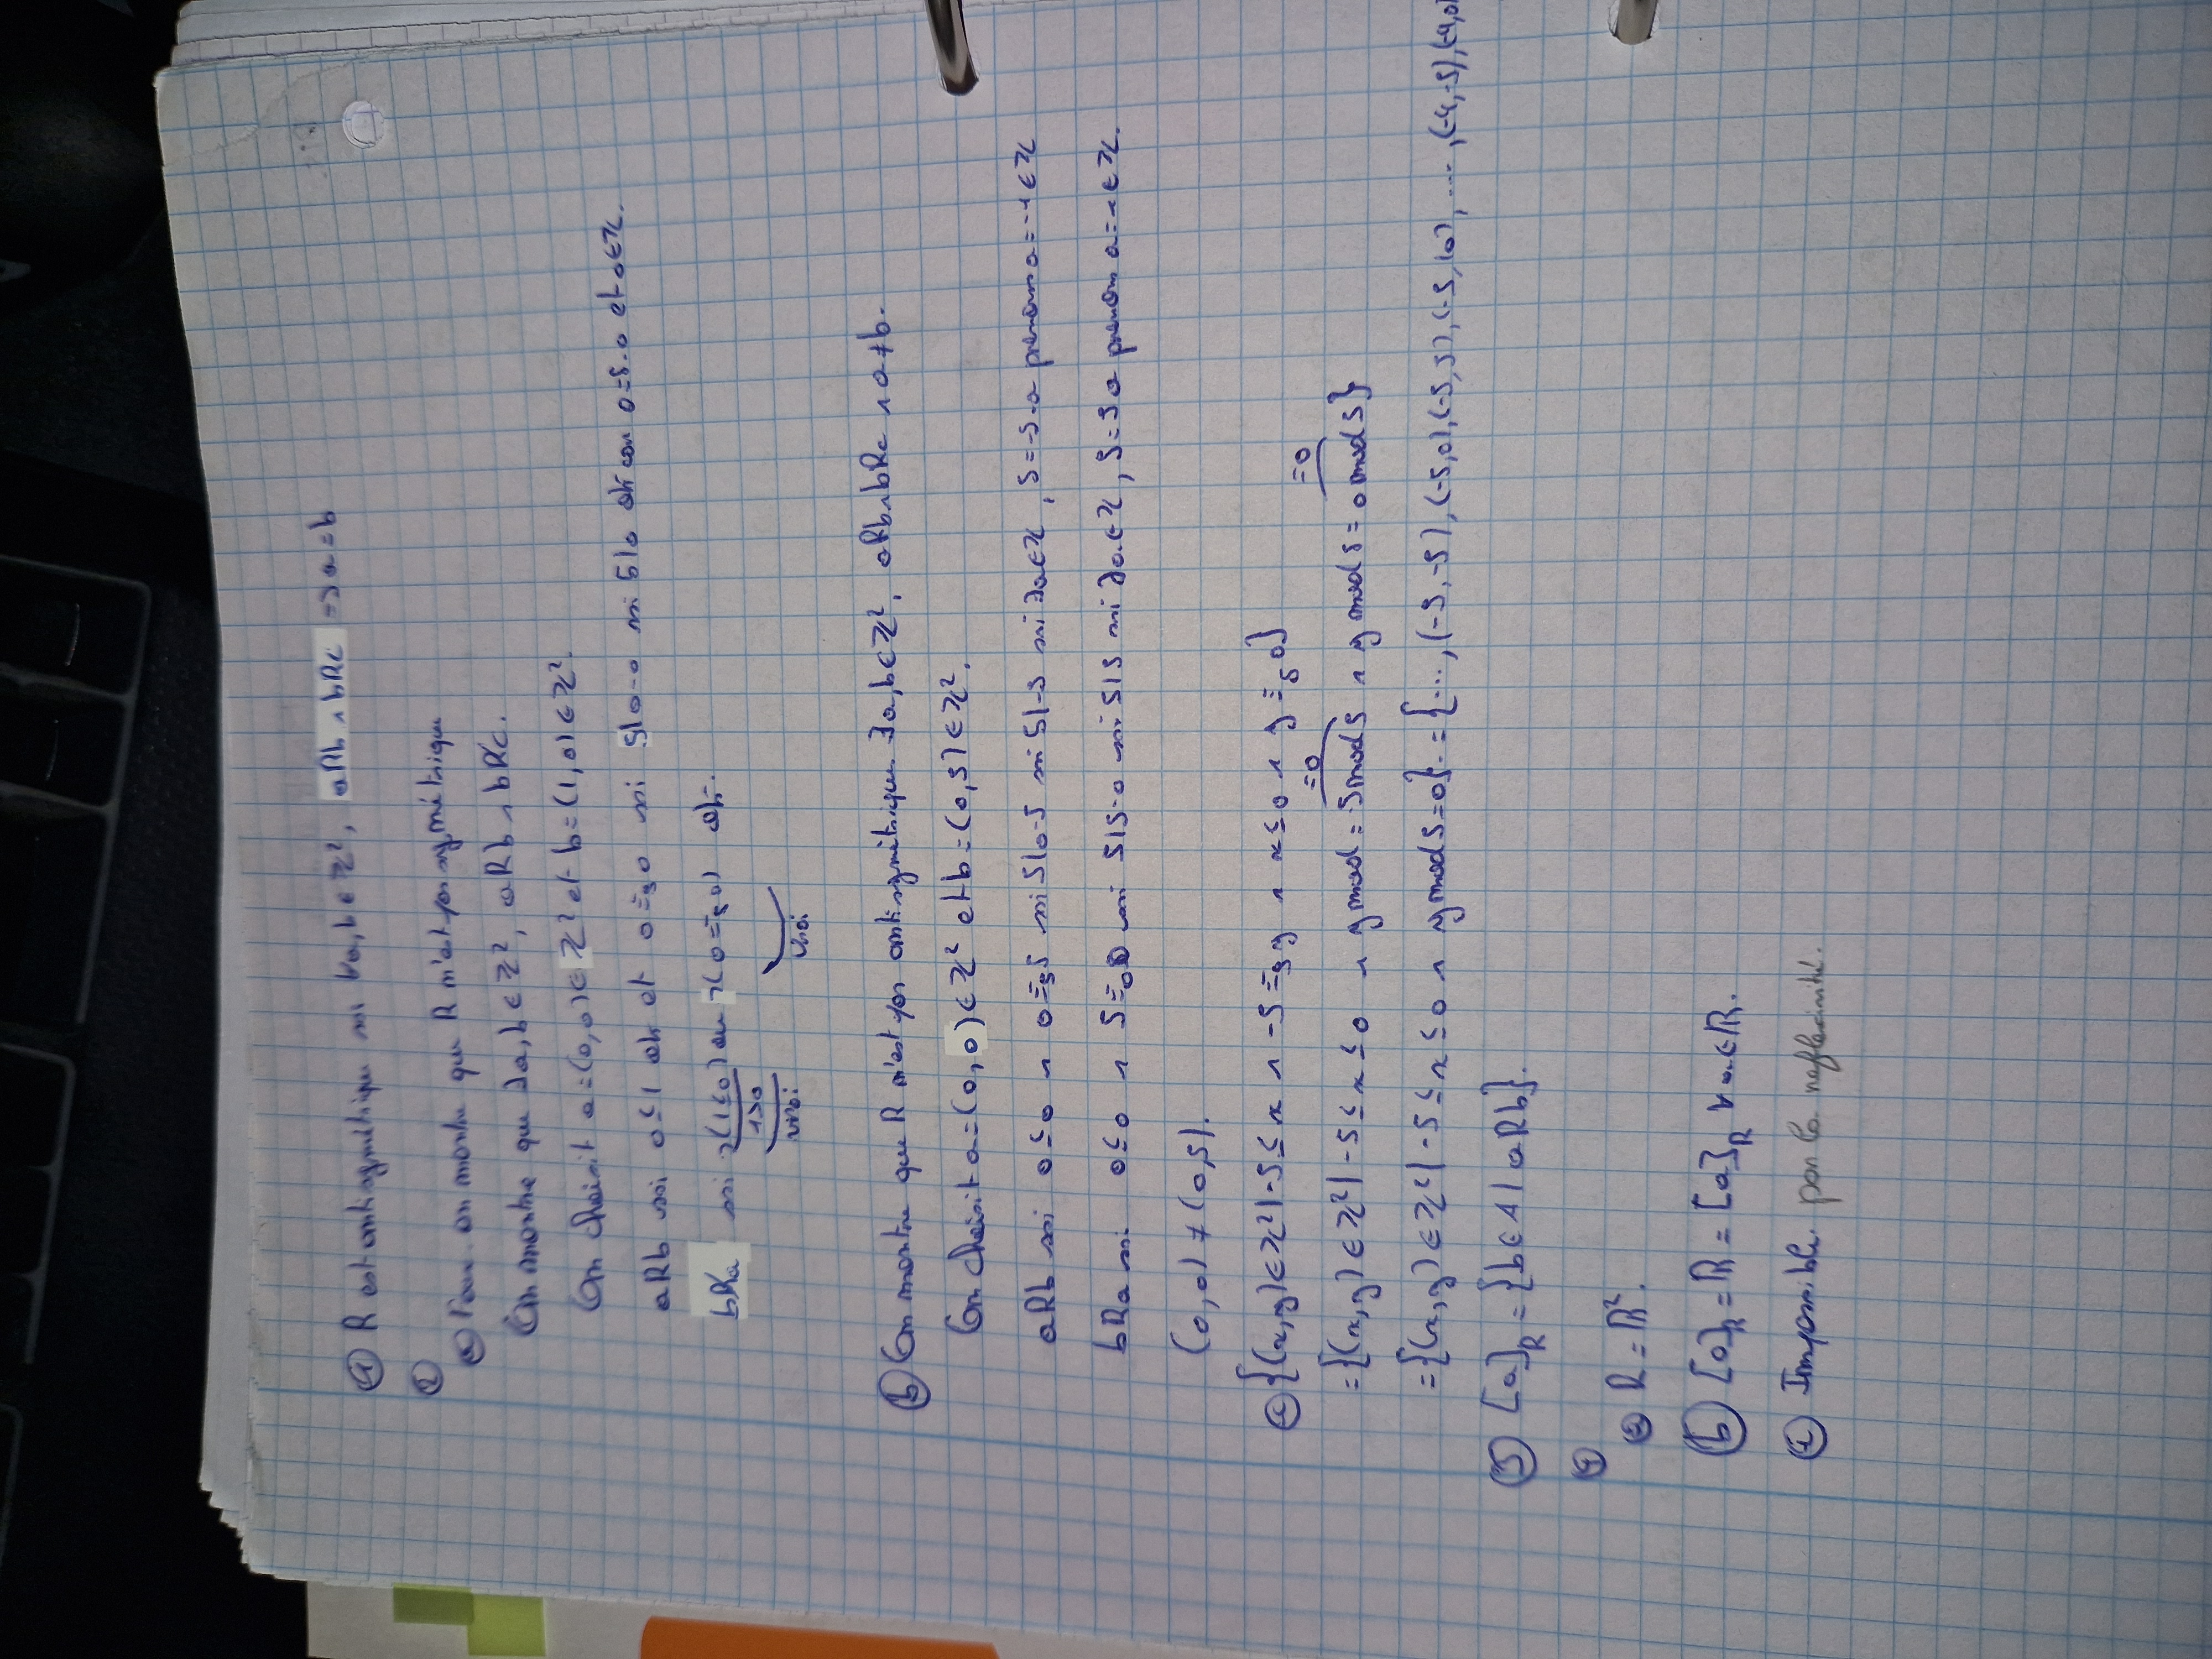 ① R est antisymétrique ssi ∀a,b ∈ ℤ², aRb ∧ bRa => a = b
②
ⓐ Faux. on montre que R n'est pas symétrique
On montre que ∃a,b ∈ ℤ², aRb ∧ bR̸a.
On choisit a = (0,0) ∈ ℤ² et b = (1,0) ∈ ℤ².
aRb ssi 0 ≤ 1 ok et 0 ≡₅ 0 ssi 5|0-0 ssi 5|0 ok car 0 = 5·0 et 0 ∈ ℤ.
bR̸a ssi ¬(1 ≤ 0) ou ¬(0 ≡₅ 0) ok.
1>0
vrai vrai
ⓑ On montre que R n'est pas antisymétrique ∃a,b ∈ ℤ², aRb ∧ bRa ∧ a ≠ b.
On choisit a = (0,0) ∈ ℤ² et b = (0,5) ∈ ℤ².
aRb ssi 0 ≤ 0 ∧ 0 ≡₅ 5 ssi 5|0-5 ssi 5|-5 ssi ∃a ∈ ℤ, 5 = -5·a prenons a = -1 ∈ ℤ
bRa ssi 0 ≤ 0 ∧ 5 ≡₀ 0 ssi 5|5-0 ssi 5|5 ssi ∃a ∈ ℤ, 5 = 5a prenons a = 1 ∈ ℤ.
(0,0) ≠ (0,5).
ⓒ {(x,y) ∈ ℤ² | -5 ≤ x ∧ -5 ≡₅ y ∧ x ≤ 0 ∧ y ≡₅ 0}
=0 =0
= {(x,y) ∈ ℤ² | -5 ≤ x ≤ 0 ∧ y mod = -5 mod 5 ∧ y mod 5 = 0 mod 5}
= {(x,y) ∈ ℤ² | -5 ≤ x ≤ 0 ∧ y mod 5 = 0}. = {..., (-5,-5), (-5,0), (-5,5), (-5,10), ..., (-4,-5), (-4,0)
③ [a]R = {b ∈ A | aRb}.
④
ⓐ R = ℝ².
ⓑ [0]R = ℝ = [a]R ∀a ∈ ℝ.
ⓒ Impossible. par la reflexivité.